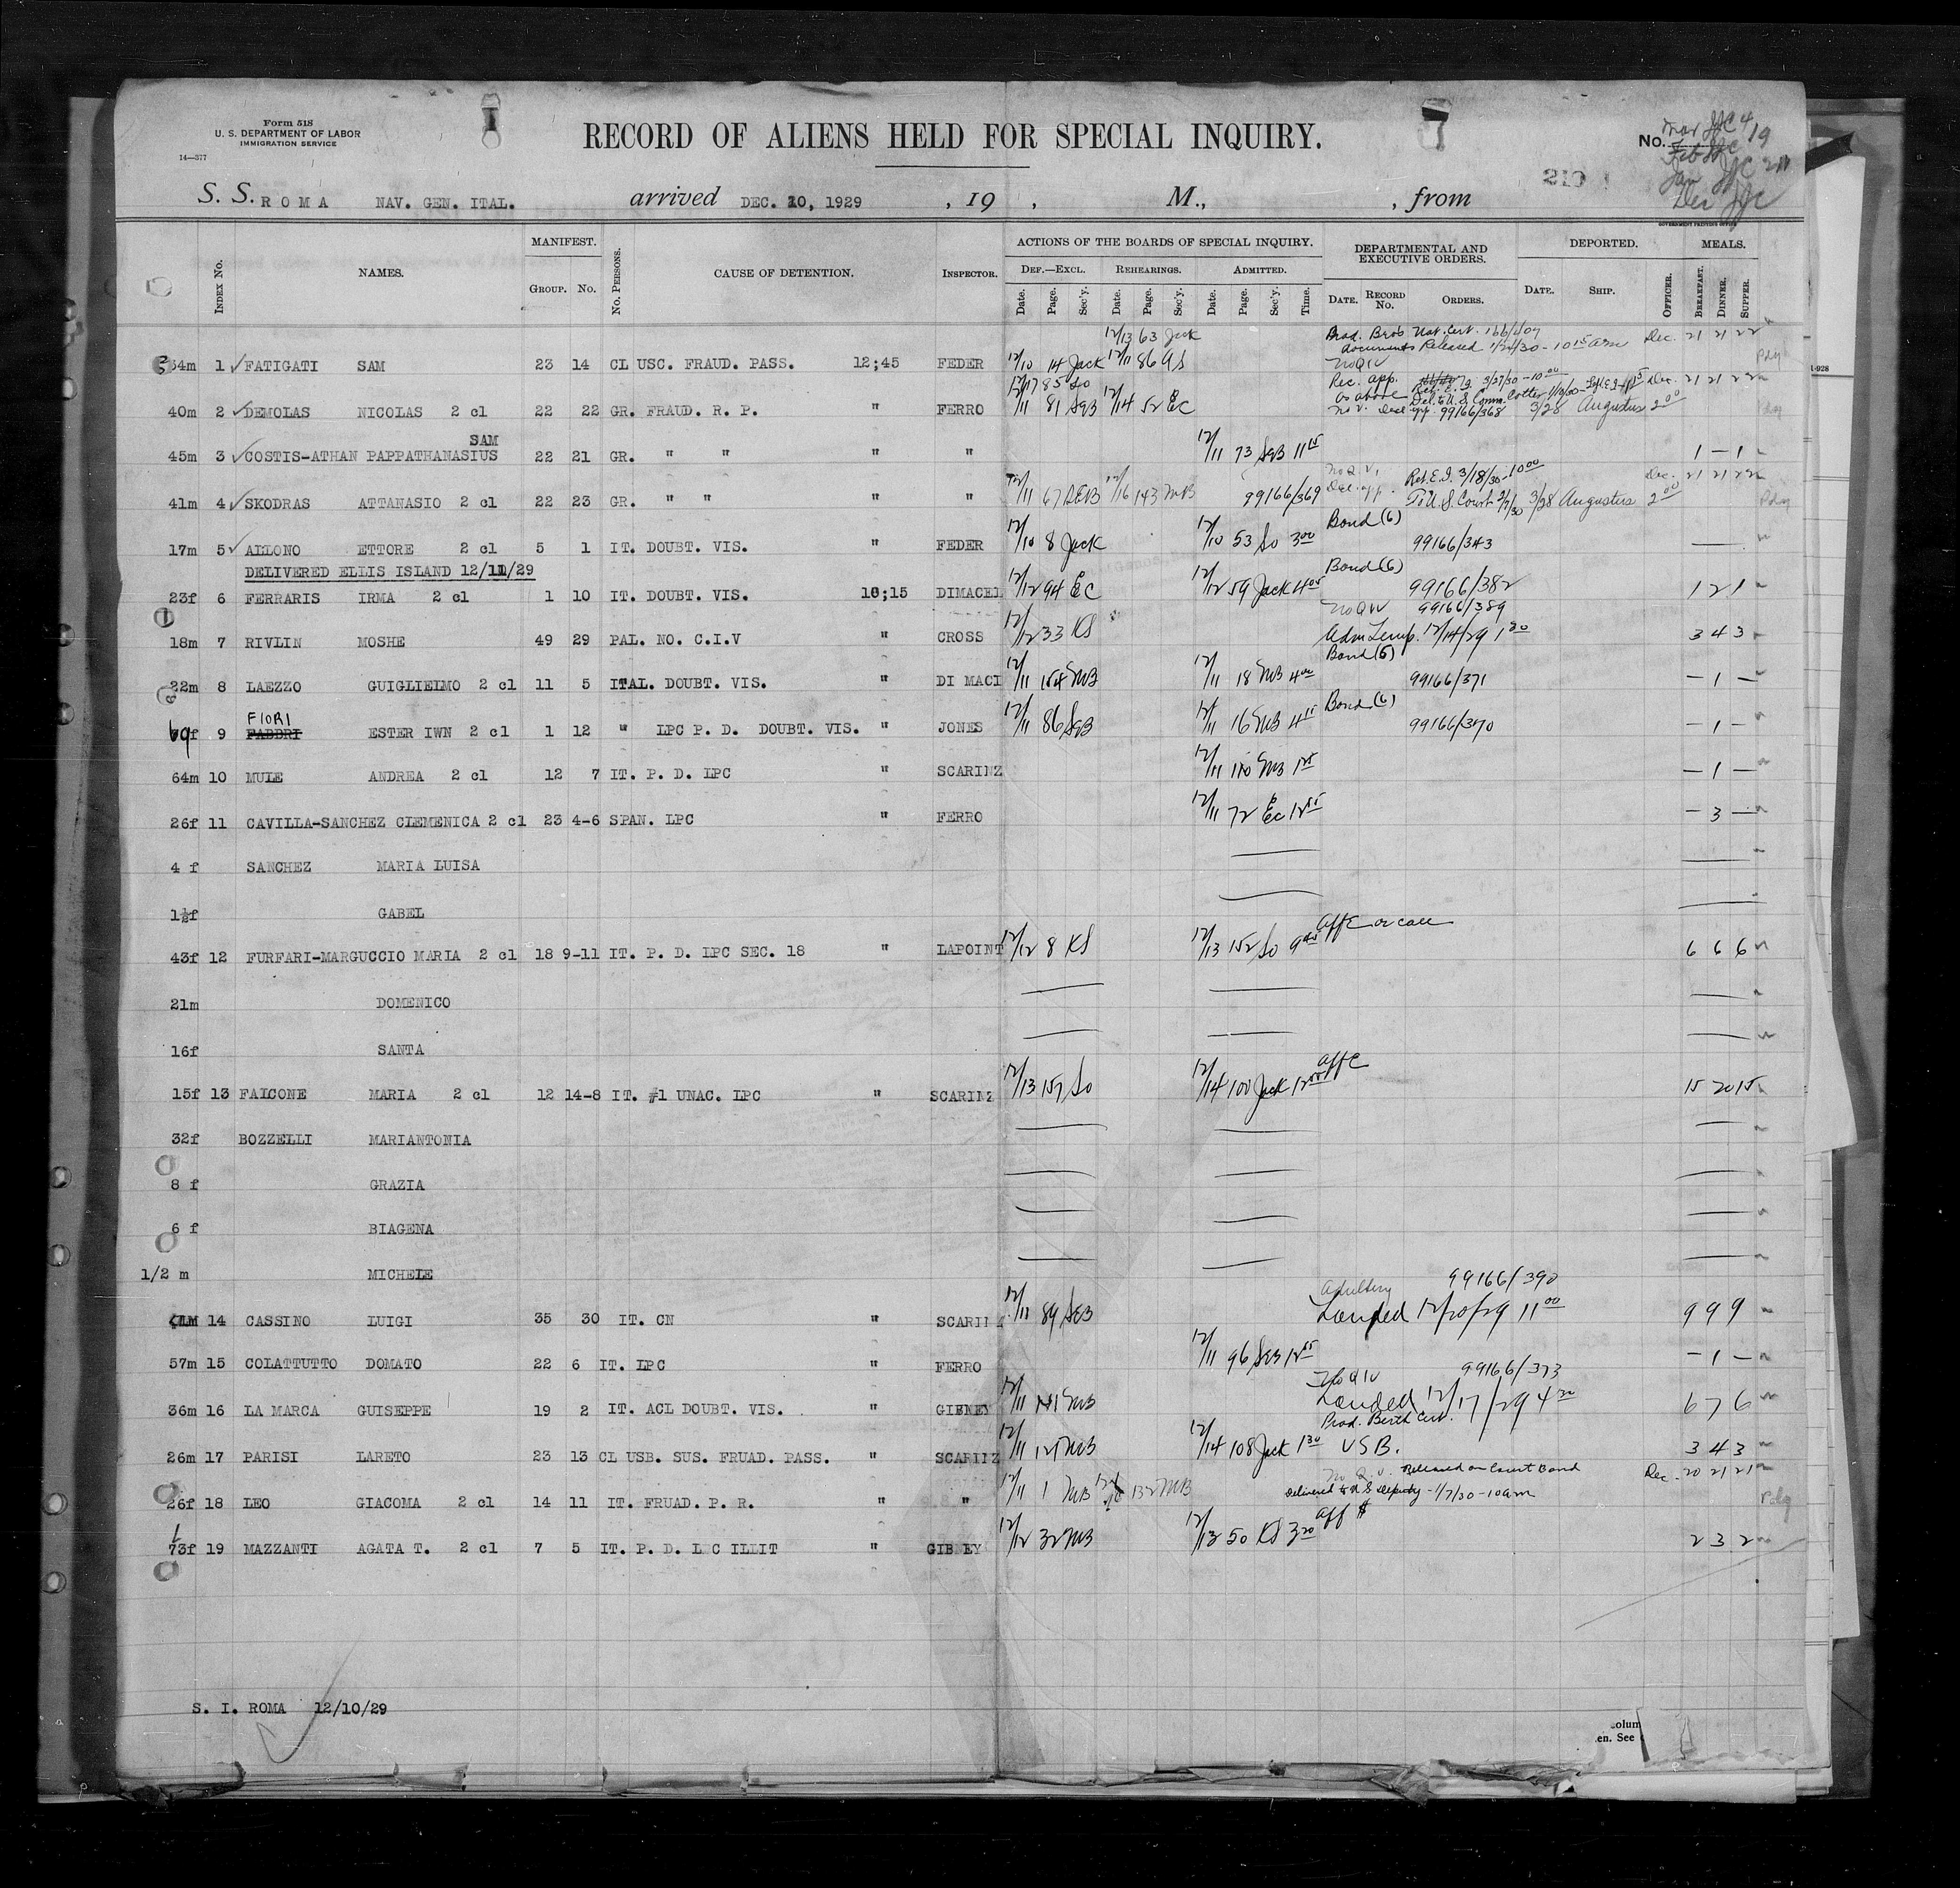 Form 518
U. S. DEPARTMENT OF LABOR
IMMIGRATION SERVICE
14—377
RECORD OF ALIENS HELD FOR SPECIAL INQUIRY.
No.
210
S. S. ROMA NAV. GEN. ITAL. arrived DEC. 10, 1929 , 19 , M., , from
GOVERNMENT PRINTING OFFICE
Index No. NAMES. MANIFEST. Group. No. No. Persons. CAUSE OF DETENTION. INSPECTOR. ACTIONS OF THE BOARDS OF SPECIAL INQUIRY. DEPARTMENTAL AND EXECUTIVE ORDERS. DEPORTED. MEALS.
Def.—Excl. Rehearings. Admitted.
Date. Page. Sec'y. Date. Page. Sec'y. Date. Page. Sec'y. Time. Date. Record No. Orders. Date. Ship. Officer. Breakfast. Dinner. Supper.
12/13 63 Jack
documents Released 1/24/30 - 10 15 am Dec. 21 21 22
54m 1 FATIGATI SAM 23 14 CL USC. FRAUD. PASS. 12;45 FEDER 12/10 14 Jack 12/11 86 AS
12/17 85 So Rec. app. 3/27/30 - 10 00 Dec. 21 21 22
40m 2 DEMOLAS NICOLAS 2 cl 22 22 GR. FRAUD. R. P. " FERRO 12/11 81 SEB 12/14 52 EC 99166/368 3/28 Augustus 2 00
SAM
45m 3 COSTIS-ATHAN PAPPATHANASIUS 22 21 GR. " " " " 12/11 73 SEB 11 15 1 — 1
Ret. E.I. 3/18/30 - 10 00 Dec. 21 21 22
41m 4 SKODRAS ATTANASIO 2 cl 22 23 GR. " " " " 12/11 67 SEB 12/16 143 MB 99166/369 To U.S. Court 3/28 Augustus 2 00
Bond (6)
17m 5 ALLONO ETTORE 2 cl 5 1 IT. DOUBT. VIS. " FEDER 12/10 8 Jack 12/10 53 So 3 00 99166/343 —
DELIVERED ELLIS ISLAND 12/11/29
Bond (6)
23f 6 FERRARIS IRMA 2 cl 1 10 IT. DOUBT. VIS. 10;15 DIMACEL 12/12 94 EC 12/12 59 Jack 4 05 99166/382 1 2 1
99166/389
18m 7 RIVLIN MOSHE 49 29 PAL. NO. C.I.V " CROSS 12/12 33 KS Adm Temp. 12/14/29 1 30 3 4 3
Bond (5)
22m 8 LAEZZO GUIGLIELMO 2 cl 11 5 ITAL. DOUBT. VIS. " DI MACI 12/11 154 MB 12/11 18 MB 4 00 99166/371 — 1 —
FIORI Bond (6)
69f 9 FABBRI ESTER IWN 2 cl 1 12 " LPC P. D. DOUBT. VIS. " JONES 12/11 86 SEB 12/11 16 MB 4 15 99166/370 — 1 —
64m 10 MULE ANDREA 2 cl 12 7 IT. P. D. LPC " SCARINZ 12/11 110 MB — 1 —
26f 11 CAVILLA-SANCHEZ CLEMENICA 2 cl 23 4-6 SPAN. LPC " FERRO 12/11 72 EC 12 55 — 3 —
4 f SANCHEZ MARIA LUISA
1½f GABEL
aff C or call
43f 12 FURFARI-MARGUCCIO MARIA 2 cl 18 9-11 IT. P. D. LPC SEC. 18 " LAPOINT 12/12 8 KS 12/13 152 So 9 45 6 6 6
21m DOMENICO
16f SANTA
aff C
15f 13 FALCONE MARIA 2 cl 12 14-8 IT. #1 UNAC. LPC " SCARINZ 12/13 157 So 12/14 100 Jack 15 20 15
32f BOZZELLI MARIANTONIA
8 f GRAZIA
6 f BIAGENA
1/2 m MICHELE
Adultery 99166/390
14 CASSINO LUIGI 35 30 IT. CN " SCARIN 12/11 89 SEB Landed 12/20/29 11 00 9 9 9
57m 15 COLATTUTTO DOMATO 22 6 IT. LPC " FERRO 12/11 96 SEB 12 55 — 1 —
99166/373
36m 16 LA MARCA GUISEPPE 19 2 IT. ACL DOUBT. VIS. " GIBNEY 12/11 141 MB Landed 12/17/29 4 30 6 7 6
Prod. Birth Cert.
26m 17 PARISI LARETO 23 13 CL USB. SUS. FRUAD. PASS. " SCARINZ 12/11 125 MB 12/14 108 Jack 1 30 USB. 3 4 3
Released on Court Bond Dec. 20 21 21
26f 18 LEO GIACOMA 2 cl 14 11 IT. FRUAD. P. R. " " 12/11 1 MB 132 MB Delivered to U S Deputy - 1/7/30 - 10am
aff $
73f 19 MAZZANTI AGATA T. 2 cl 7 5 IT. P. D. LPC ILLIT " GIBNEY 12/12 32 MB 12/13 50 KS 3 20 2 3 2
S. I. ROMA 12/10/29